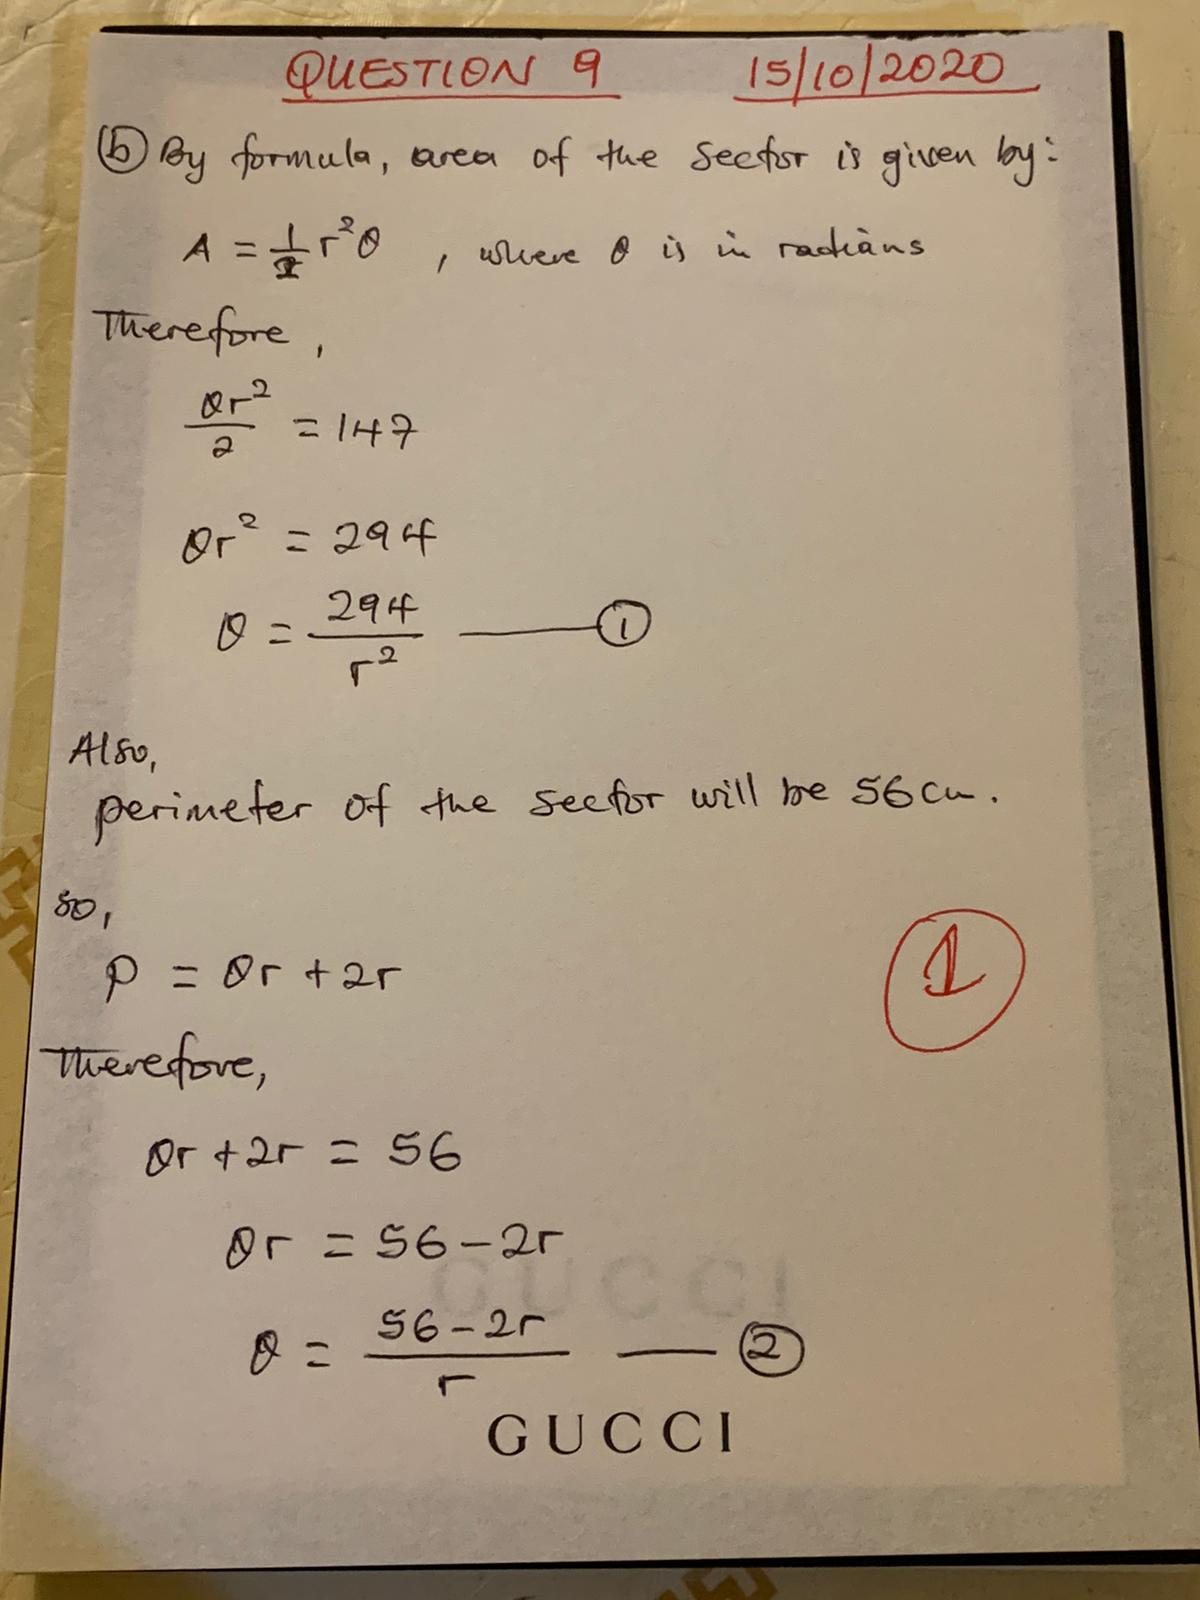 QUESTION 9 15/10/2020
(b) By formula, area of the sector is given by:
A = 1/2 r²θ , where θ is in radians
Therefore,
θr²/2 = 147
θr² = 294
θ = 294/r² —— ①
Also,
perimeter of the sector will be 56cm.
so,
P = θr + 2r
1
Therefore,
θr + 2r = 56
θr = 56 - 2r
θ = 56 - 2r/r —— ②
GUCCI
GUCCI